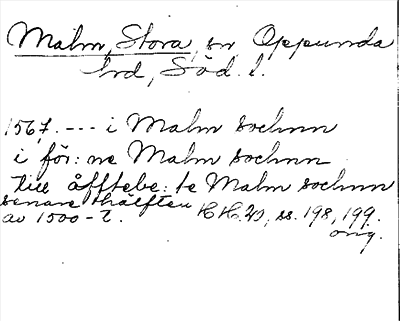 Malm, Stora, sn Oppunda
hrd, Söd. l.
1567. --- i Malm sochnn
i för: ne Malm sochnn
till åfftebe: te Malm sochnn
senare hälften
av 1500-t. HH. 20, ss. 198, 199.
orig.